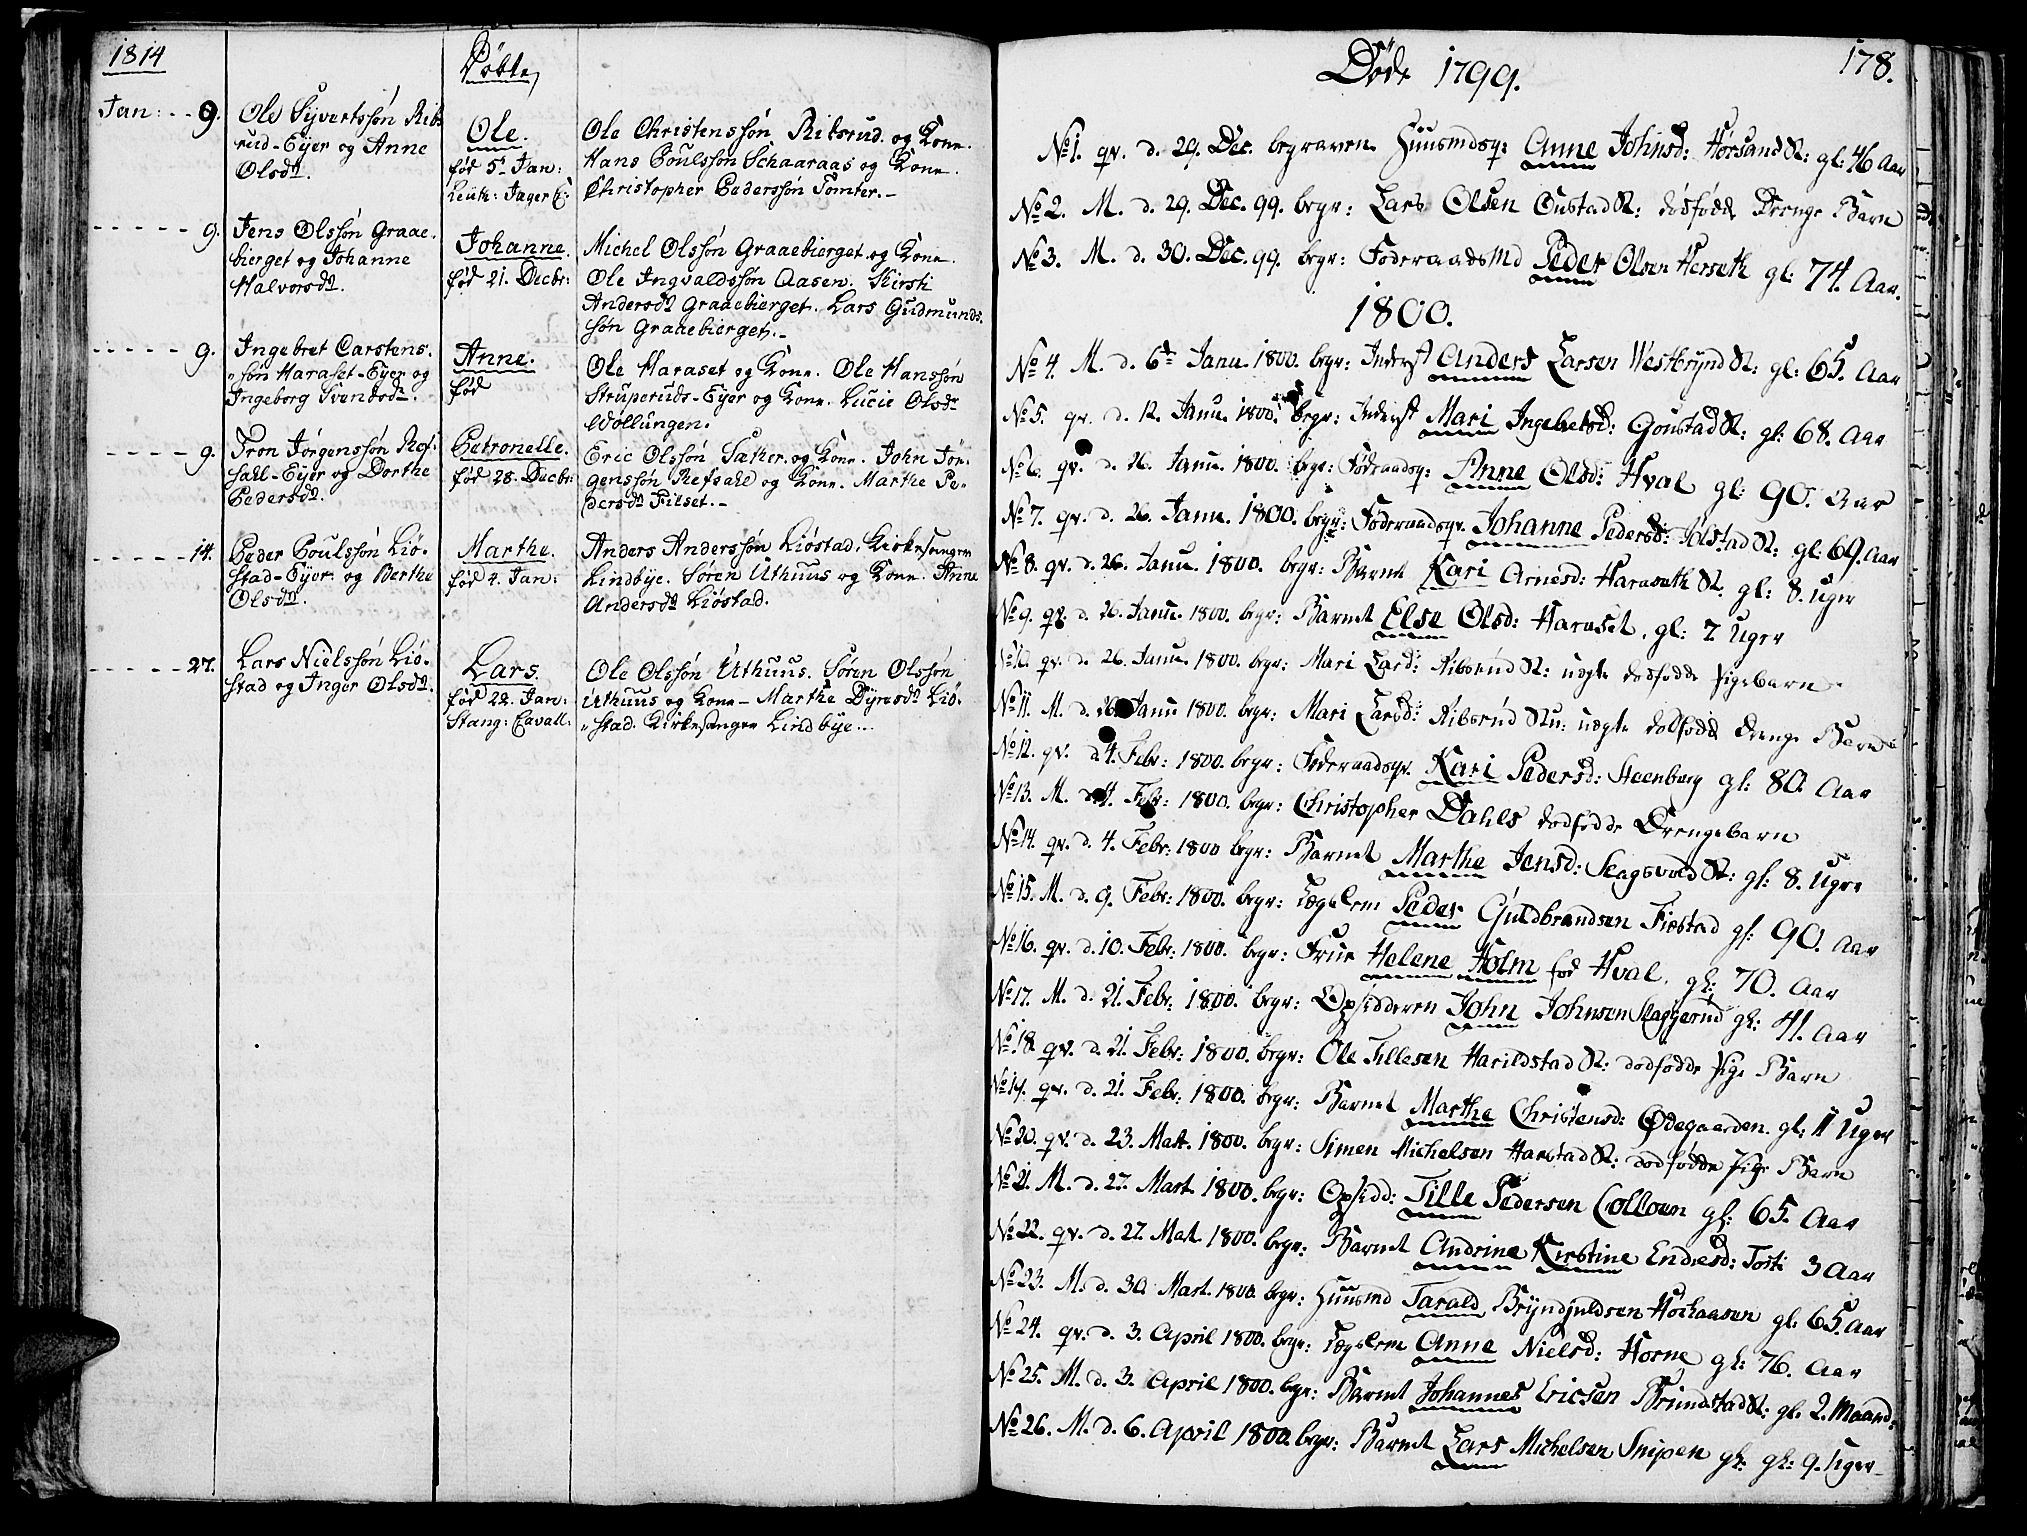 1814
Døbte,
Jan: - - 9.
Ole Syvertssøn Ribs
rud-Eyer og Anne
Olsdr.
Ole.
fød 5 Jan:
Leuth: Jæger C:
Ole Christenssøn Ribsrud. og Kone.
Hans Poulssøn Schaaraas og Kone.
Christopher Pederssøn Tomter.-
- - - - - 9.
Jens Olssøn Graae.
bierget og Johanne
Halvorsdr.
Johanne.
fød 21. Decbr:
Michel Olssøn Graaebierget og Kone.
Ole Ingvaldssøn Aasen. Kirsti
Andersdr Graaebierget. Lars Gudmunds.
søn Graaebierget.-
- - - - - 9.
Ingebret Carstens.
søn Haraset-Eyer og
Ingeborg Svendsdr.
Anne.
fød
Ole Haraset og Kone. Ole Hanssøn
Struperuds-Eyer og Kone. Lucie Olsdr
Wøllungen.
- - - - - 9.
Tron Jørgenssøn Ref.
sahl-Eyer og Dorthe
Pedersdr.
Petronelle.
fød 28. Decbr:
Eric Olssøn Sæther og Kone. John Jør.
genssøn Refsahl og Kone. Marthe Pe.
dersdr Filset.-
- - - - - 14.
Peder Poulssøn Liø.
stad-Eyer og Berthe
Olsdr.
Marthe.
fød 4. Jan:
Anders Anderssøn Liøstad. Kirkesanger
Lindbye. Søren Uthuus og Kone. Anne
Andersdr Liøstad.
- - - - - 27.
Lars Nielssøn Liø.
stad og Inger Olsdr.
Lars.
fød 22. Jan:
Stang: Cavall:
Ole Olssøn Uthuus. Søren Olssøn
Uthuus og Kone - Marthe Dyresdr Liø.
stad. Kirkesanger Lindbye...
Døde 1799.
178.
No 1. qv. d. 29. Dec. begraven Huusmdsqv: Anne Johnsd: Horsand St: gl: 46 Aar
No 2. M. d. 29. Dec. 99. begr: Lars Olsen Oustad St: dødfødde Drenge Barn
No 3. M. d. 30. Dec. 99. begr: Føderaads Md Peder Olsen Herseth gl: 74. Aar.
1800.
No 4. M. d. 6te Janu. 1800. begr: Inderst Anders Larsen Westbrynd St: gl: 65. Aar
No 5. qv. d. 12. Janu. 1800. begr: Inderst Mari Ingebretsd: Goustad St: gl: 68. Aar
No 6. qv. d. 26. Janu. 1800. begr: Føderaadsqv: Anne Olsd: Hval gl: 90. Aar
No 7. qv. d. 26. Janu. 1800. begr: Føderaadsqv. Johanne Pedersd: Jølstad St: gl: 69. Aar
No 8. qv. d. 26. Janu. 1800. begr: Barnet Kari Arnesd: Haraseth St. gl: 8. Uger
No 9. qv. d. 26. Janu. 1800. begr: Barnet Else Olsd: Haraset, gl: 7 Uger
No 10. qv. d. 26. Janu. 1800. begr: Mari Larsd: Ribsrud St: uægte dødfødde Pigebarn
No 11. M. d. 26. Janu 1800. begr: Mari Larsd: Ribsrud St: uægte dødfødd Drenge Barn
No 12. qv. d. 4. Febr: 1800. begr: Føderaadsqv. Kari Pedersd: Steenberg gl: 80. Aar
No 13. M. d. 4. Febr: 1800. begr: Christopher Dahls dødfødde Drengebarn
No 14. qv. d. 4. Febr: 1800 begr: Barnet Marthe Jensd: Skagsvold St: gl: 8. Uger
No 15. M. d. 9. Febr: 1800. begr: Lægslem Peder Guldbrandsen Fiæstad gl: 90. Aar
No 16. qv. d. 10. Febr: 1800. begr: Frue Helene Holm fød Hval, gl: 70. Aar
No 17. M. d. 21. Febr: 1800. begr: Opsidderen John Johnsen Slaggerud gl: 41. Aar
No 18 qv. d. 21. Febr: 1800. begr: Ole Tillesen Harildstad St: dødfødde Pige Barn
No 19. qv. d. 21. Febr: 1800. begr: Barnet Marthe Christensd: Ødegaarden gl: 11 Uger
No 20. qv. d. 23. Mart. 1800. begr: Simen Michelsen Harstad St: dødfødde Pige Barn
No 21. M. d. 27. Mart. 1800. begr: Opsidd: Tille Pedersen Colloen gl: 65. Aar
No 22. qv. d. 27. Mart. 1800. begr: Barnet Andrine Kirstine Endresd: Tosti 3 Aar
No 23. M. d. 30. Mart. 1800 begr: Huusmd Tarald Bryndjuldsen Hochaasen gl: 65. Aar
No 24. qv. d. 3. April 1800. begr: Lægslem Anne Nielsd: Horne gl: 76. Aar
No 25. M. d. 3. April 1800. begr: Barnet Johannes Ericsen Brundstad St. gl. 2. Maand:
No 26. M. d. 6. April 1800. begr: Barnet Lars Michelsen Snipen gl: gl: 9. Uger